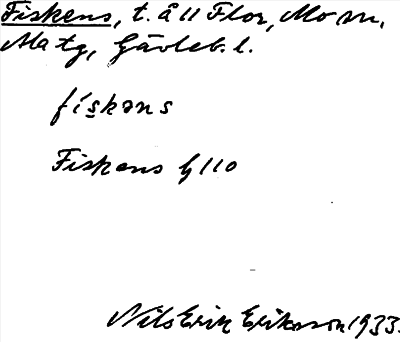 Fiskens, t. å 11 Flor, Mo sn,
Matg, Gävleb. l.
fískəns
Fiskens G 110
Nils Erik Eriksson 1933.